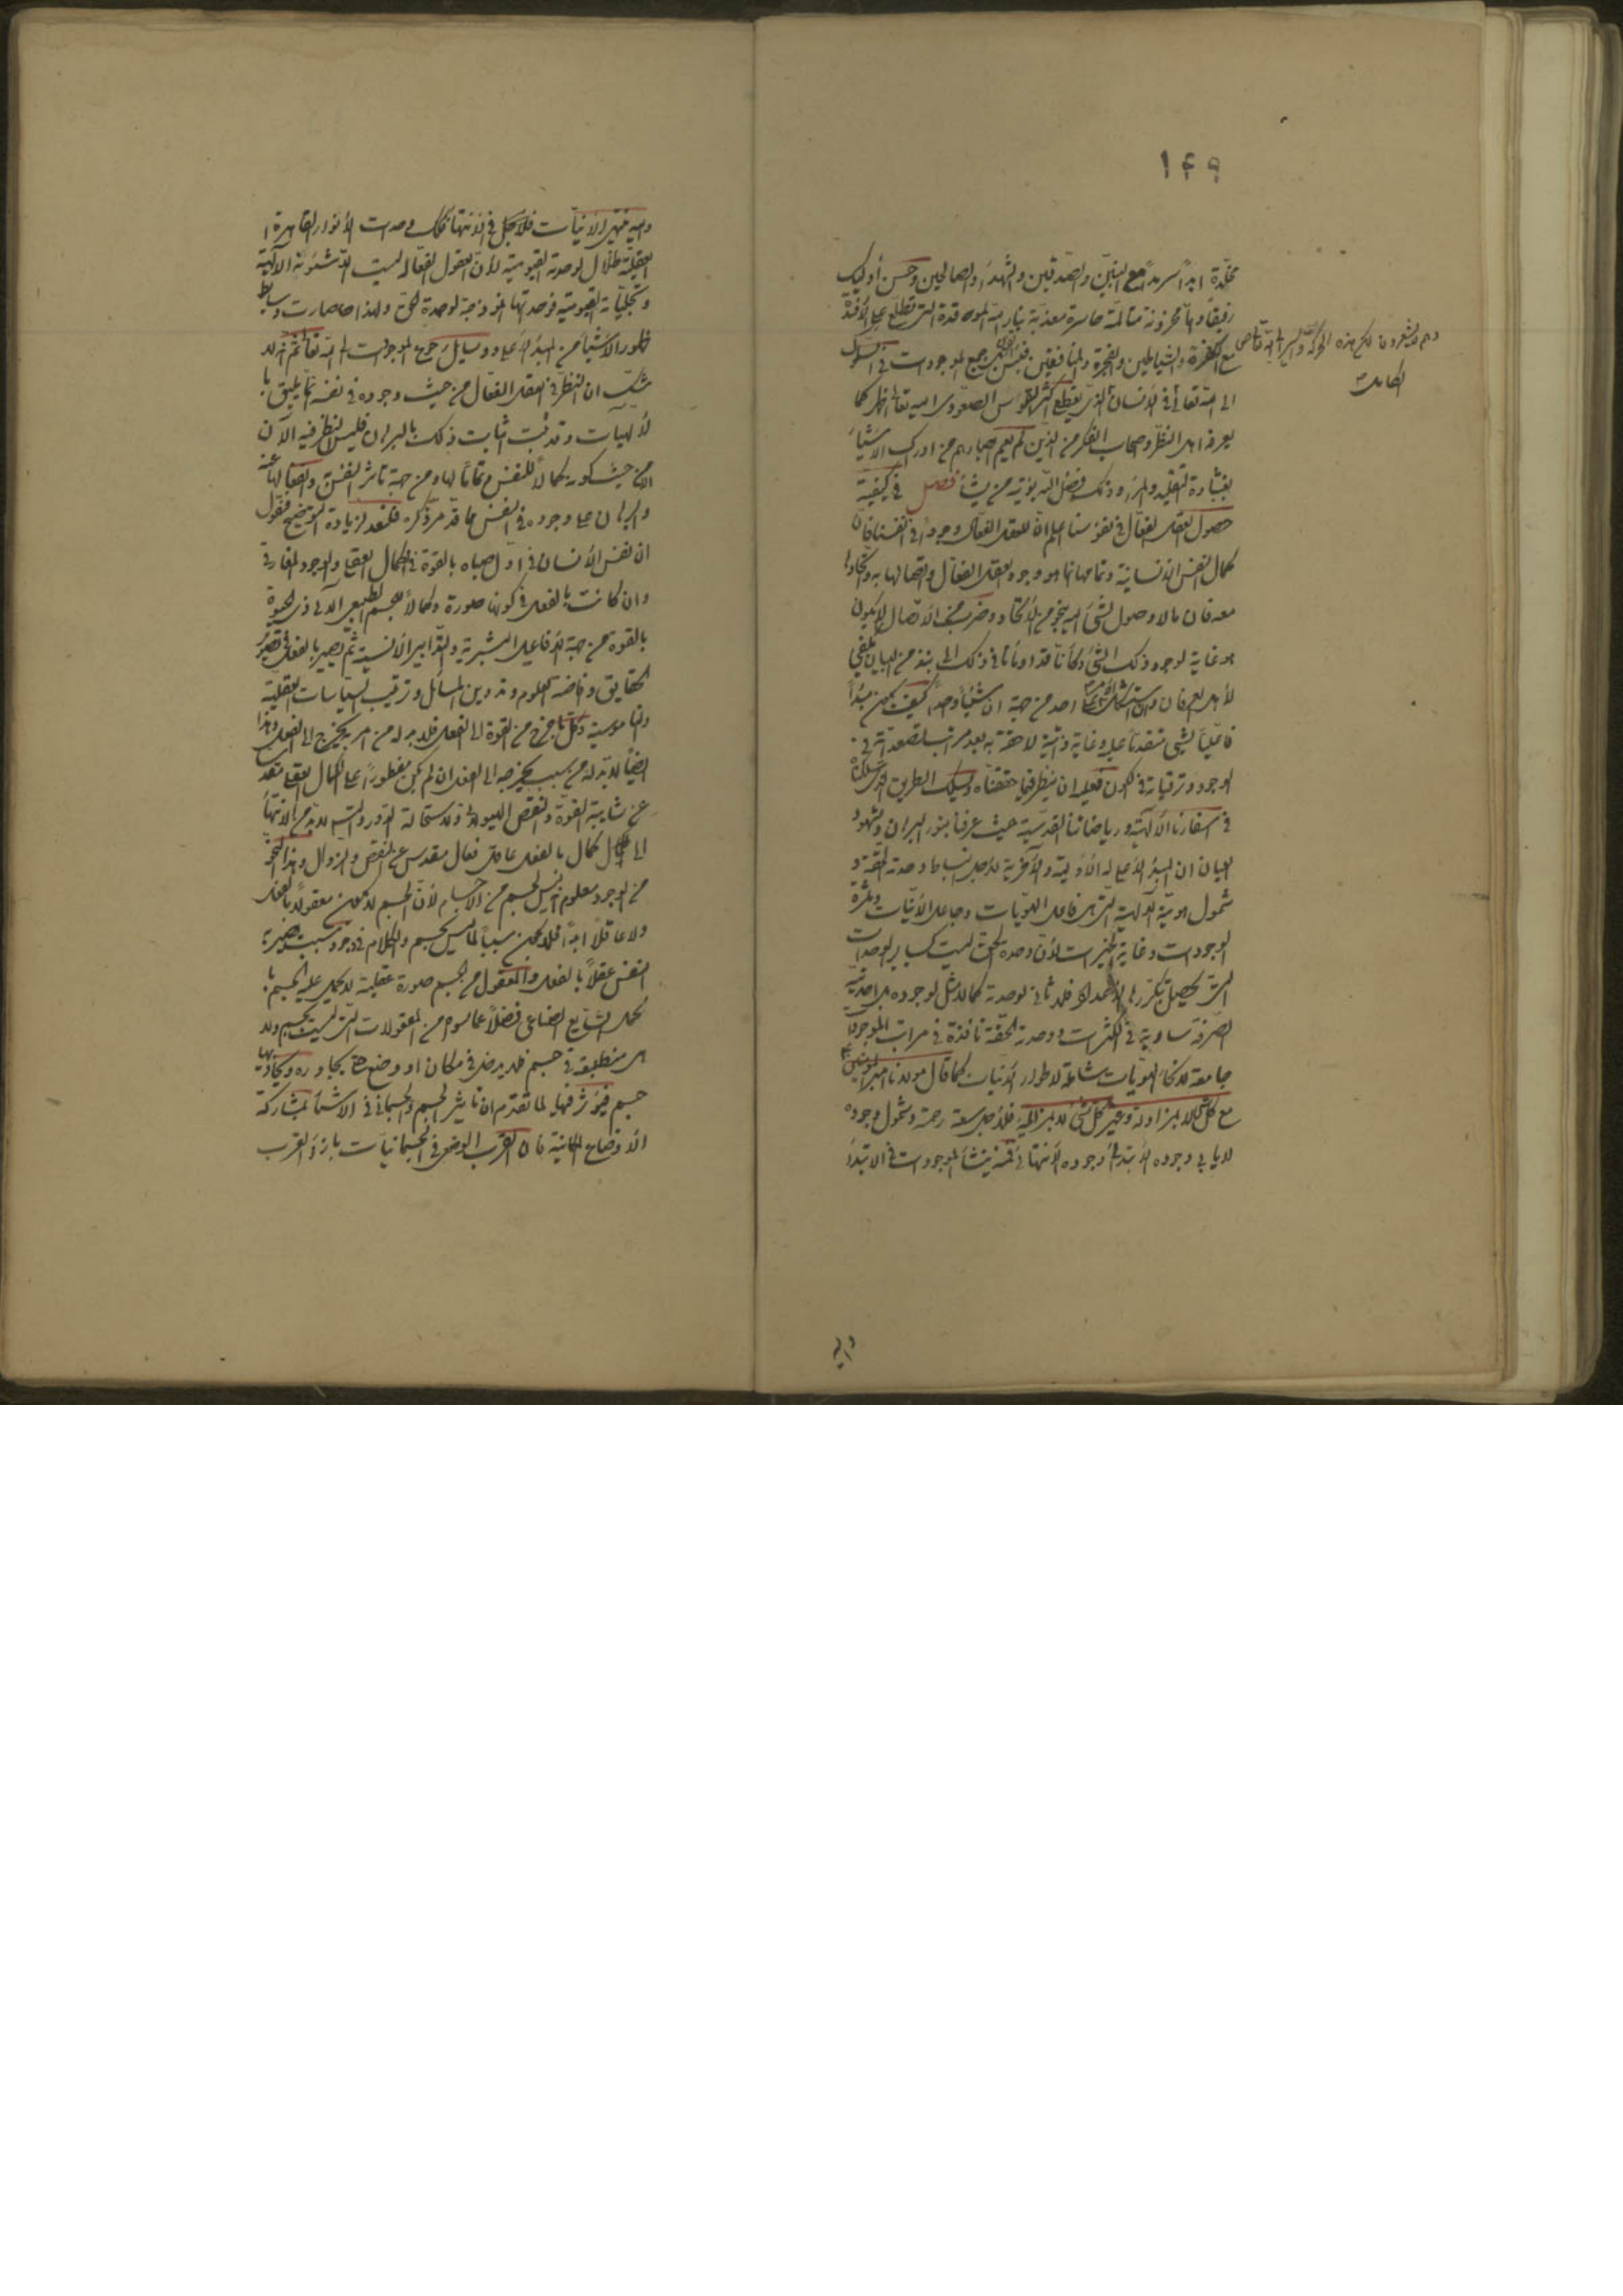 ١٤٩
مخلّدة ابداً سرمداً مع النبيّين والصّديقين والشهداء والصالحين وحسن أوليك
رفيقاً وامّا محزونة متألمة خاسرة معذبة بنار الله الموقدة التى تطلع على الأفئدة
مع الكفرة والشياطين والفجرة والمنافقين فبئس القرين رجوع الموجودات فى السلوك
وهم لا يشعرون لكن هذه الحركة والسير الى الله تعالى
الى الله تعالى فى الانسان الذى يقطع اكثر القوس الصعودى اليه تعالى اظهر كما
يعرفه اهل النظر واصحاب الفكر من الذين لم يعم ابصارهم من ادراك الاشياء
بغشاوة التقليد والمراء وذلك فضل الله يؤتيه من يشاء فصل فى كيفية
حصول العقل الفعّال فى نفوسنا اعلم انّ للعقل الفعّال وجوداً فى انفسنا فانّ
كمال النفس الانسانية وتمامها انما هو وجود العقل الفعّال واتصالها به واتّحادها
معه فان ما لا وصول لشئ اليه بنحو من الاتحاد وضرب من الاتصال لا يكون
هو غاية لوجود ذلك الشئ وكأنّا قد اومأنا فى ذلك الى نبذ من البيان يكفي
لأهل العرفان وان استشكل احد من جهة ان شيئاً واحداً كيف يكون مبدأ
فاعلياً لشئ متقدماً عليه وغاية ذاتية لاحقة به بعد مراتب استعداداته فى
الوجود وترقياته فى الكون فعليه ان ينظر فيما حققناه ويسلك الطريق الذى سلكناه
فى اسفارنا الالهية ورياضاتنا القدسية حيث عرفنا بنور البرهان وشهود
العيان ان المبدأ الأعلى له الأولية والآخرية لاجل انبساط وحدته الحقة و
شمول هويّته الالهية التى هى فاعل الهويات وجاعل الانيّات وثمرة
الوجودات وغاية الخيرات لأن وحدة الحق ليست كساير الوحدات
التى يحصل بتكررها الاعداد فلا ثانى لوحدته كما لا مثل لوجوده بل احديته
الصرفة سارية فى الكثرات ووحدته الحقة نافذة فى مراتب الموجودات
جامعة لانحاء الهويّات شاملة لاطوار الانيات كما قال مولانا امير المؤمنين
مع كل شئ لا بمزاولة وغير كل شئ لا بمزايلة فلأجل سعة رحمته وشمول وجوده
لا يابى وجوده الابتدائى وجوده الانتهائى فمنه ينشأ الموجودات فى الابتداء
واليه
واليه ينتهى الانيّات فلأجل فى الانتهاء فكذلك وحدات الأنوار القاهرة
العقلية ظلال لوحدته القيومية لأن العقول الفعّالة ليست الا شئونه الالهية
وتجلياته القيومية فوحدتها انموذجة لوحدة الحق ولهذا صارت وسايط
ظهور الاشياء من المبدأ الأعلى ووسايل رجوع الموجودات الى الله تعالى ثم انه لا
شكّ ان النظر فى العقل الفعّال من حيث وجوده فى نفسه انما يليق با
لألهيات وقد ثبت اثبات ذلك بالبرهان فليس النظر فيه الآن
الا من حيث كونه كمالاً للنفس وتماماً لها ومن جهة تاثر النفس وانفعالها عنه
والبرهان على وجوده فى النفس ما قد مر ذكره فلنعد لزيادة التوضيح فنقول
ان نفس الأنسان فى اول صباه بالقوة فى الكمال العقلى والوجود المفارقى
وان كانت بالفعل فى كونها صورة وكمالاً للجسم الطبيعى الآلى ذى الحيوة
بالقوة من جهة الافاعيل البشرية والتدابير الأنسية ثم يصير بالفعل فى تصوير
الحقايق وافاضة العلوم وتدوين المسائل وترتيب السياسات العقلية
والناموسية وكل ما خرج من القوة الى الفعل فلا بد له من امر يخرجه الى الفعل وهذا
ايضاً لا بد له من سبب يخرجه الى الفعل ان لم يكن مفطوراً على الكمال العقلى مقدساً
عن شايبة القوة والنقص الهيولى ولاستحالة الدور والتسلسل لا بد من الانتهاء
الى كل كمال بالفعل عاقل فعال مقدس عن النقص والزوال وهذا النحو
من الوجود معلوم انه ليس لجسم من الاجسام لأن الجسم لا يكون معقولاً بالفعل
ولا عاقلاً ابداً فلا يكون سبباً لما ليس بجسم والكلام فى وجود سبب يصير به
النفس عقلاً بالفعل والمعقول من الجسم صورة عقلية لا يحمل عليه الجسم با
لحمل الشايع الصناعى فضلاً عما سواه من المعقولات التى ليست بجسم ولا
هى منطبعة فى جسم فلا يدخل فى مكان او وضع حتى يجاوره ويحاذيها
جسم فيؤثر فيها لما تقدم ان تاثير الجسم والجسمانى فى الاشياء بمشاركة
الأوضاع المكانية فان القرب الوضعى فى الجسمانيات بازاء القرب